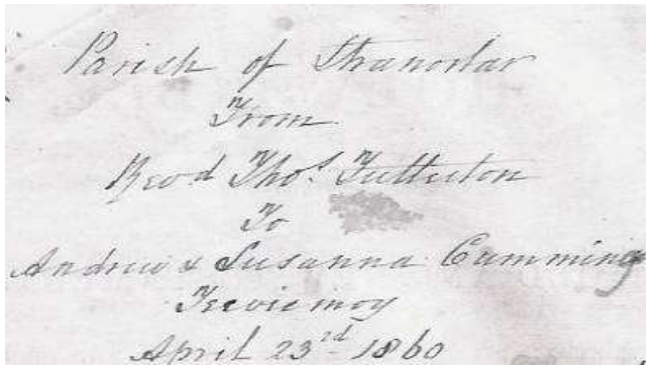 Parish of Stranorlar
From
Revd Thos Fullerton
To
Andrew & Susanna Cumming
Teevicmoy
April 23rd 1860